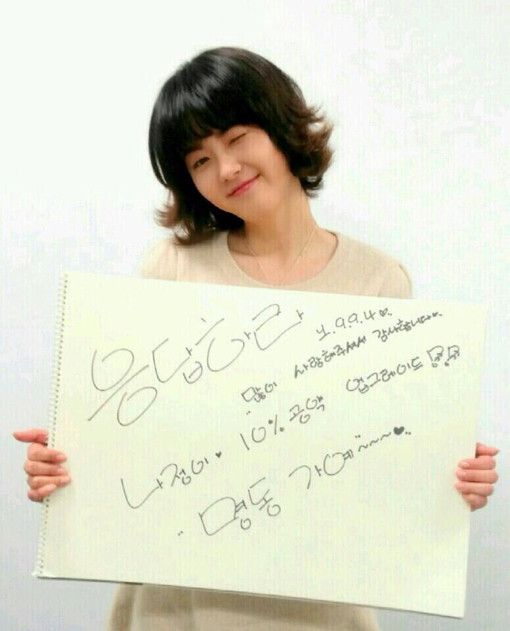 응답하라
1.9.9.4 ♡..
많이 사랑해주셔서 감사합니다..
나정이♥ 10% 공약 업그레이드
명동 가예~~~~♥..